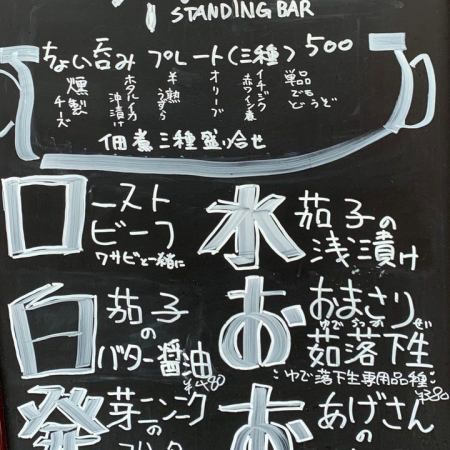 STANDING BAR
ちょい呑み プレート(三種) 500
燻製チーズ
ホタルイカ沖漬け
半熟うずら
オリーブ
イチジク赤ワイン煮
単品でもどうぞ
佃煮三種盛り合せ
ローストビーフ
ワサビと一緒に
水茄子の浅漬け
白茄子のバター醤油
¥480
おおまさり茹落花生
ゆでらっかせい
ゆで落花生専用品種
¥380
発芽ニンニクの
おあげさんの